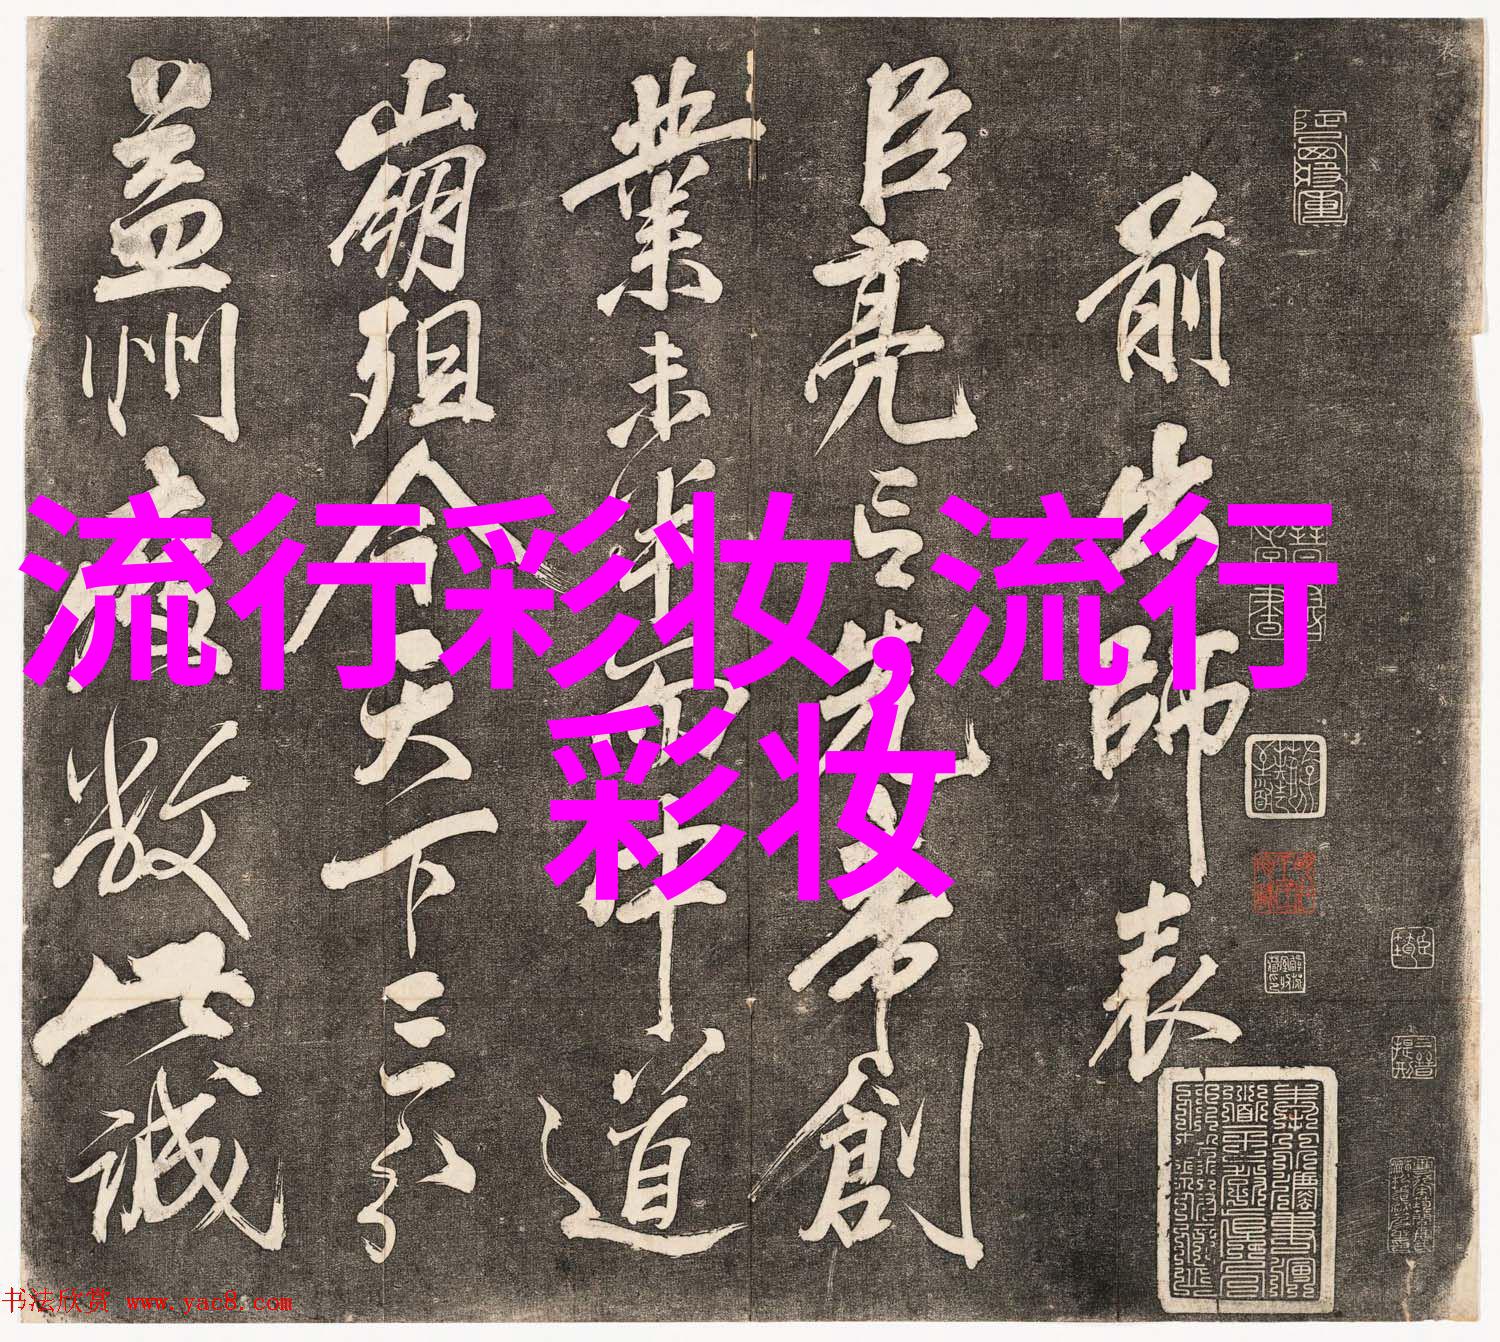 流行彩妆,流行
彩妆
前出師表
臣亮言先帝創
業未半而中道
崩殂今天下三分
益州敝此誠
书法欣赏 www.yac8.com